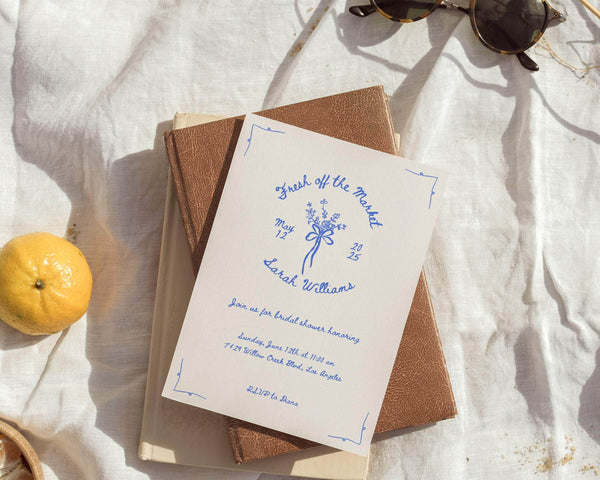 Fresh off the Market
May 20
12 25
Sarah Williams
Join us for bridal shower honoring
Sunday, June 12th at 11:00 am
7429 Willow Creek Blvd, Los Angeles
RSVP to Diana